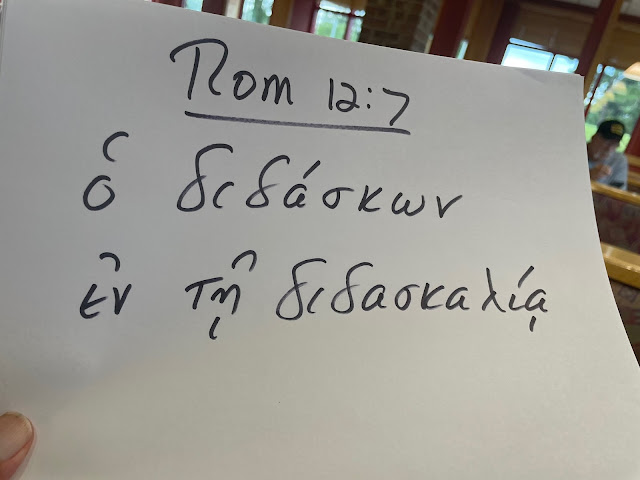 Rom 12:7
ὁ διδάσκων
ἐν τῇ διδασκαλίᾳ